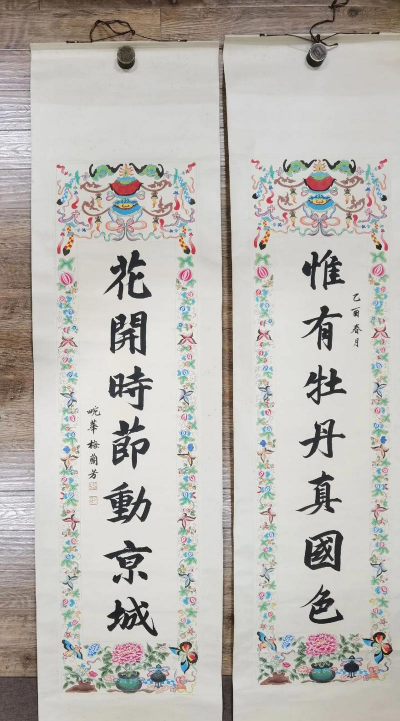 惟有牡丹真國色
乙酉春月
花開時節動京城
畹華梅蘭芳